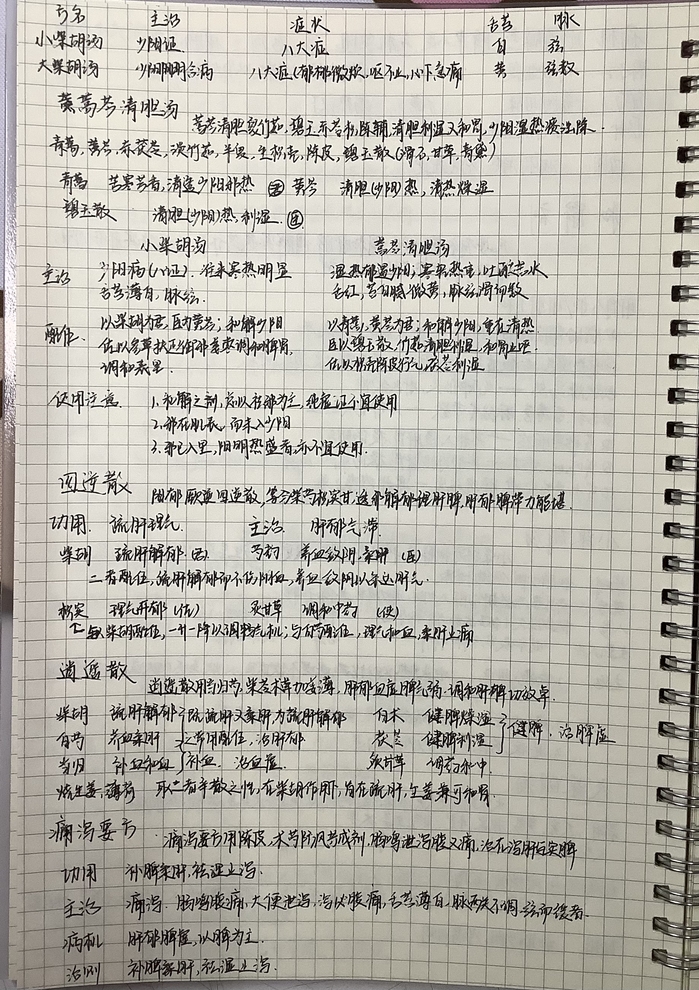 方名 主治 症状 舌苔 脉
小柴胡汤 少阳证 八大症 白 弦
大柴胡汤 少阳阳明合病 八大症(郁郁微烦,呕不止,心下急痛 黄 弦数
黄蒿芩清胆汤
蒿芩清胆裹竹茹,碧玉赤苓枳陈辅,清胆利湿又和胃,少阳湿热痰浊除.
青蒿,黄芩,赤茯苓,淡竹茹,半夏,生枳壳,陈皮,碧玉散(滑石,甘草,青黛)
青蒿 苦寒芳香,清透少阳邪热 君 黄芩 清胆(少阳)热,清热燥湿
碧玉散 清胆(少阳)热,利湿
小柴胡汤 蒿芩清胆汤
主治 少阳病(八证),往来寒热明显 湿热郁遏少阳;寒轻热重,吐酸苦水
舌苔薄白,脉弦. 舌红,苔白腻微黄,脉弦滑而数
配伍 以柴胡为君,臣为黄芩;和解少阳 以青蒿,黄芩为君;和解少阳,重在清热
佐以参草扶正御邪姜枣调和脾胃, 臣以碧玉散,竹茹清胆利湿,和胃止呕
调和表里 佐以枳壳陈皮行气,茯苓利湿
使用注意 1.和解之剂,总以祛邪为主,纯虚证不宜使用
2.邪在肌表,而未入少阳
3.邪已入里,阳明热盛者,亦不宜使用.
四逆散
阳郁厥逆四逆散,等分柴芍枳实甘,透邪解郁理肝脾,肝郁脾滞力能堪.
功用. 疏肝理气 主治 肝郁气滞.
柴胡 疏肝解郁.(君) 芍药 养血敛阴,柔肝 (臣)
二者配伍,疏肝解郁而不伤阴血,养血敛阴以条达肝气.
枳实 理气开郁(佐) 炙甘草 调和中药 (使)
↑与柴胡配伍,一升一降以调畅气机;与芍药配伍,理气和血,柔肝止痛
逍遥散
逍遥散用当归芍,柴苓术草加姜薄,肝郁血虚脾气弱,调和肝脾功效卓.
柴胡 疏肝解郁 既疏肝又柔肝为疏肝解郁 白术 健脾燥湿
白芍 养血柔肝 之常用配伍,治肝郁 茯苓 健脾利湿 健脾.治脾虚
当归 补血和血 补血.治血虚 炙甘草 调药和中.
烧生姜,薄荷 取二者辛散之性,在柴胡作用下,旨在疏肝,生姜兼可和胃.
痛泻要方
痛泻要方用陈皮,术芍防风共成剂,肠鸣泄泻腹又痛,治在泻肝与实脾
功用 补脾柔肝,祛湿止泻.
主治 痛泻.肠鸣腹痛,大便泄泻,泻必腹痛,舌苔薄白,脉两关不调,弦而缓者.
病机 肝郁脾虚,以脾为主.
治则 补脾柔肝,祛湿止泻.